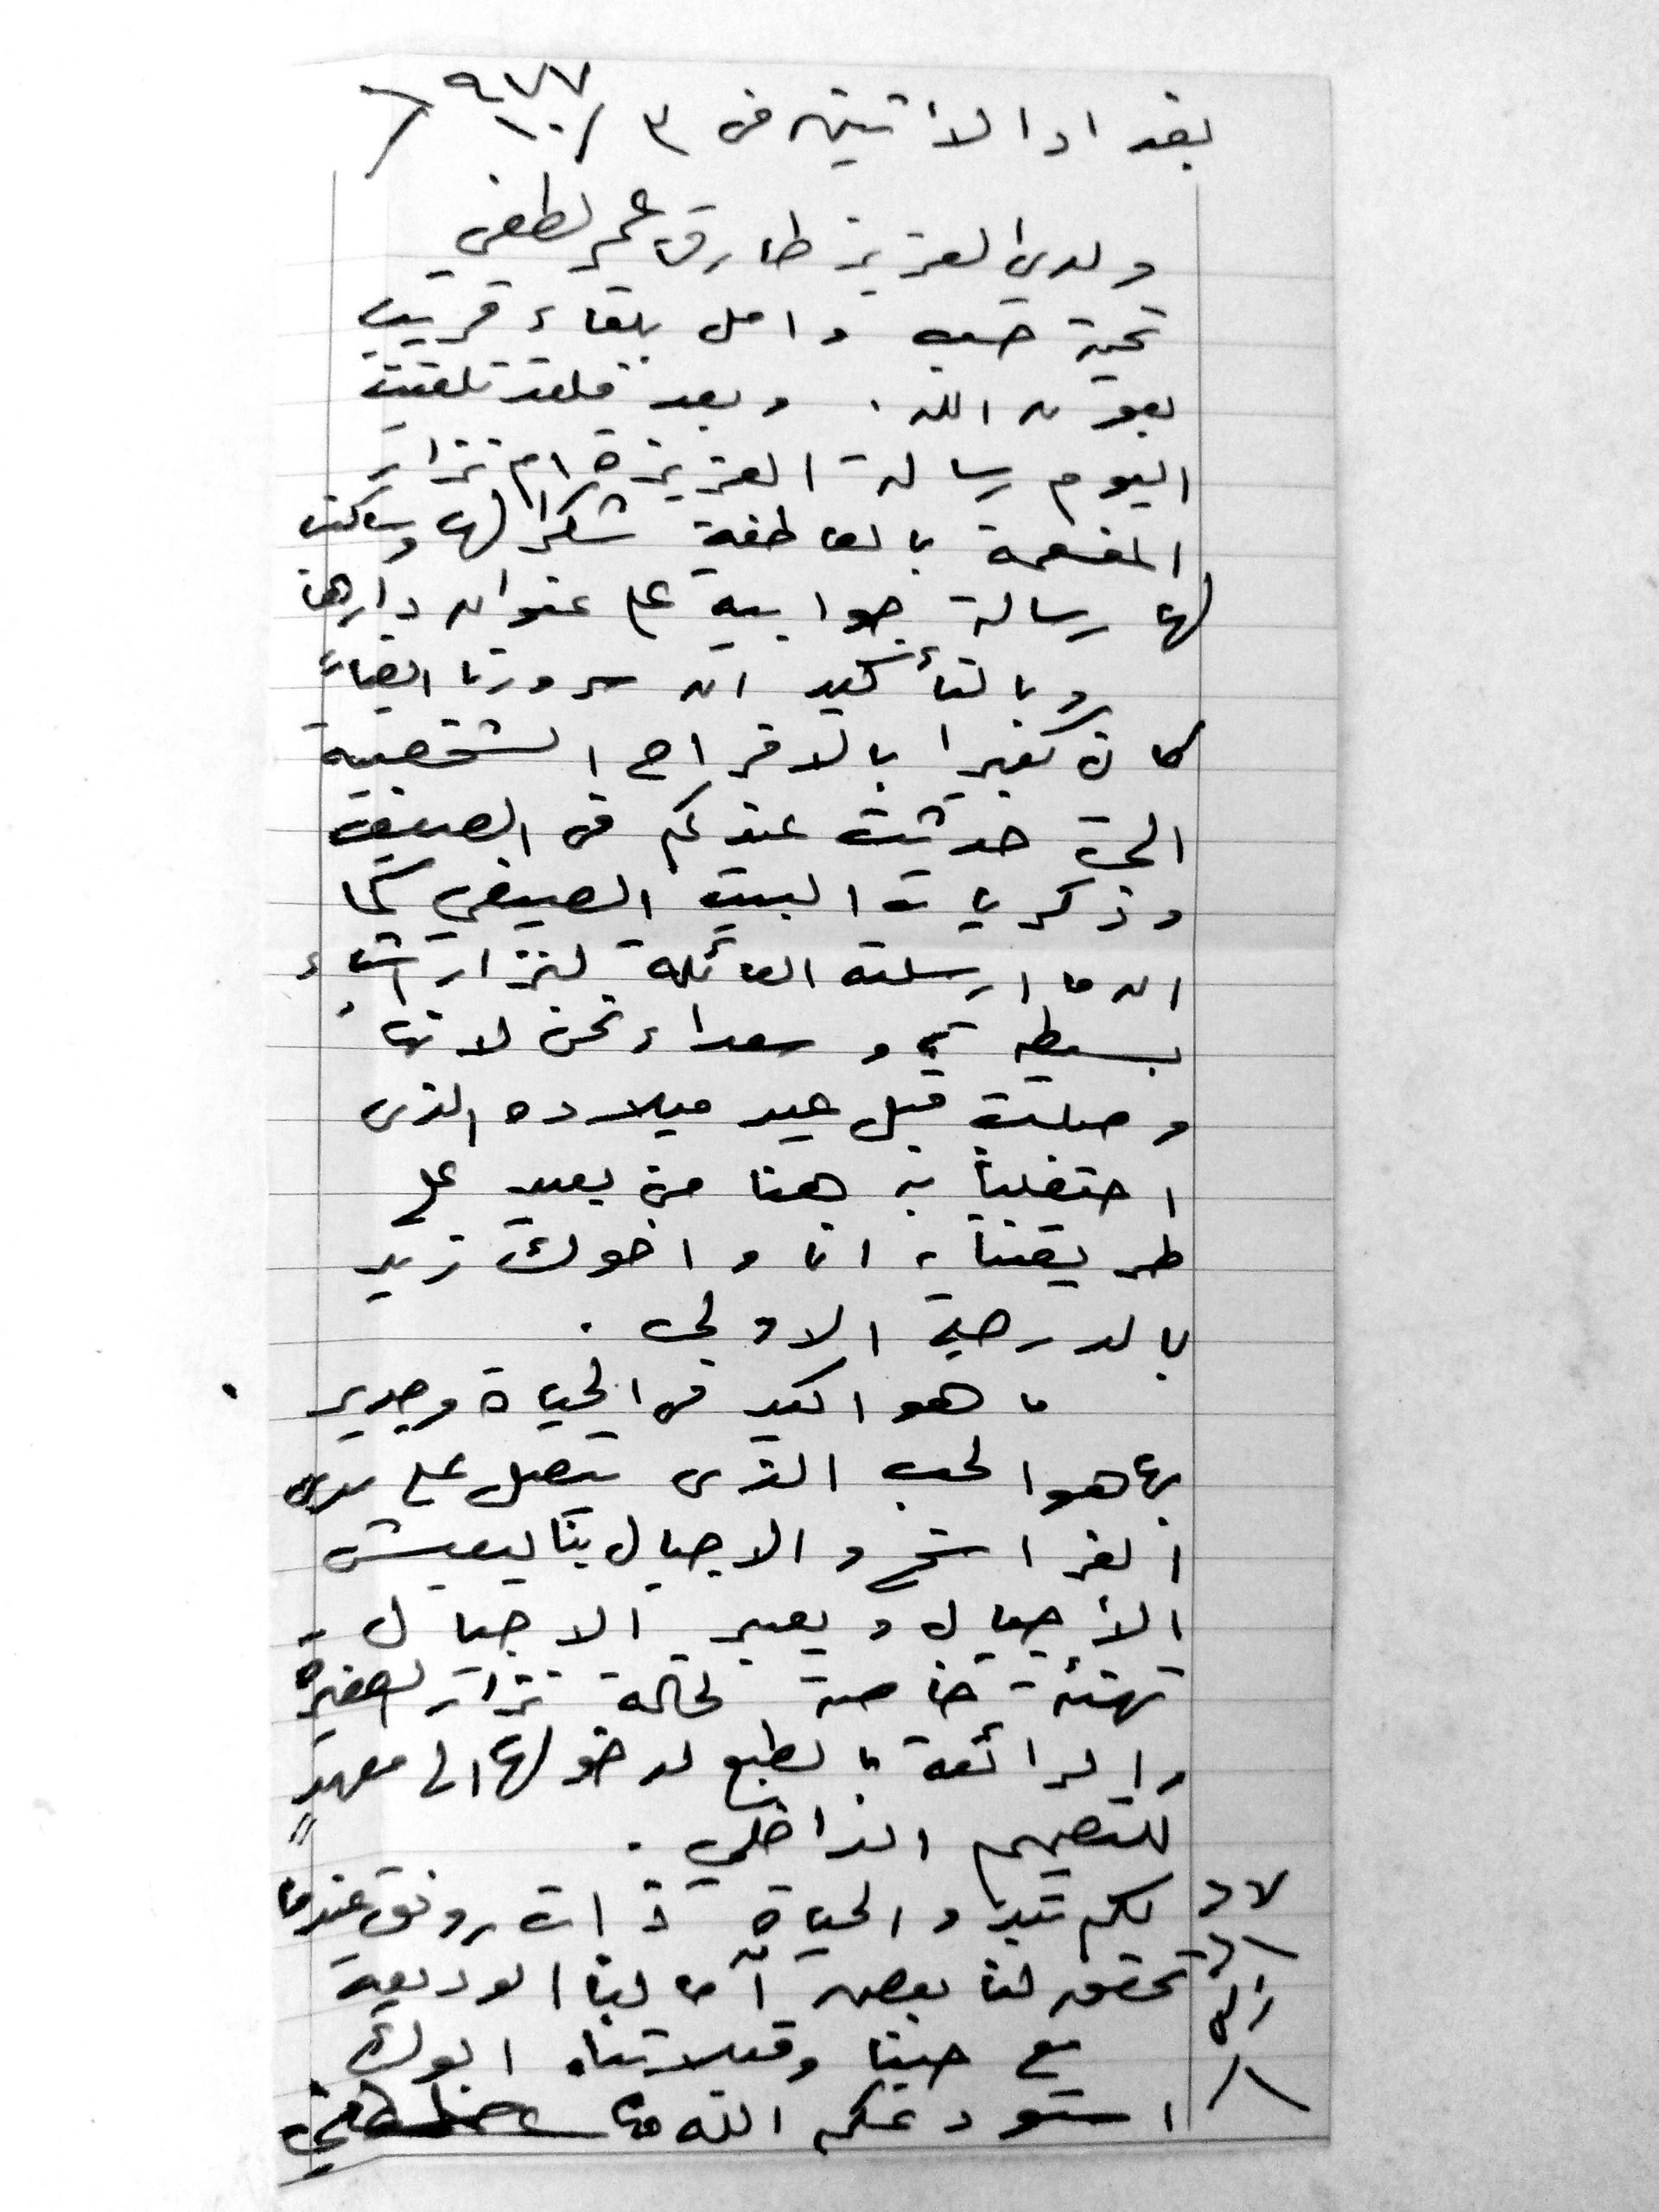 بغداد الاثنين في ٣/١٠/١٩٧٧
ولدي العزيز طارق عمر لطفي
تحية حب وامل بلقاء قريب
بعون الله. وبعد فلقد تلقيت
اليوم رسالة العزيزة ام نزار
المفعمة بالعاطفة شكرا لها وساكتب
لها رسالة جوابية على عنوان دارها
وبالتأكيد ان سرورنا ايضاً
كان كبيرا بالافراح الشخصية
التي حدثت عندكم في الصيف
وذكريات البيت الصيفي كما
ان ما ارسلته العائلة لنزار اشياء
بسيطه وسعداء نحن لانها
وصلت قبل عيد ميلاده الذي
احتفلنا به هنا من بعيد على
طريقتنا، انا واخوك زيد
بالدرجة الاولى.
ما هو اكيد في الحياة وجدير
بها هو الحب الذي يتصل على مدى
الفراسخ والاجيال بنا ليعيش
الأجيال ويعبر الاجيال -
تهنئة خاصة لخالة نزار الصغيرة
والرائعة بالطبع لدخولها الى معهد
للتصميم الداخلي.
لكم تبدو الحياة ذات رونق عندما
تحقق لنا بعض آمالنا الوديعة
مع حبنا وقبلاتنا، ابوك
استودعكم الله